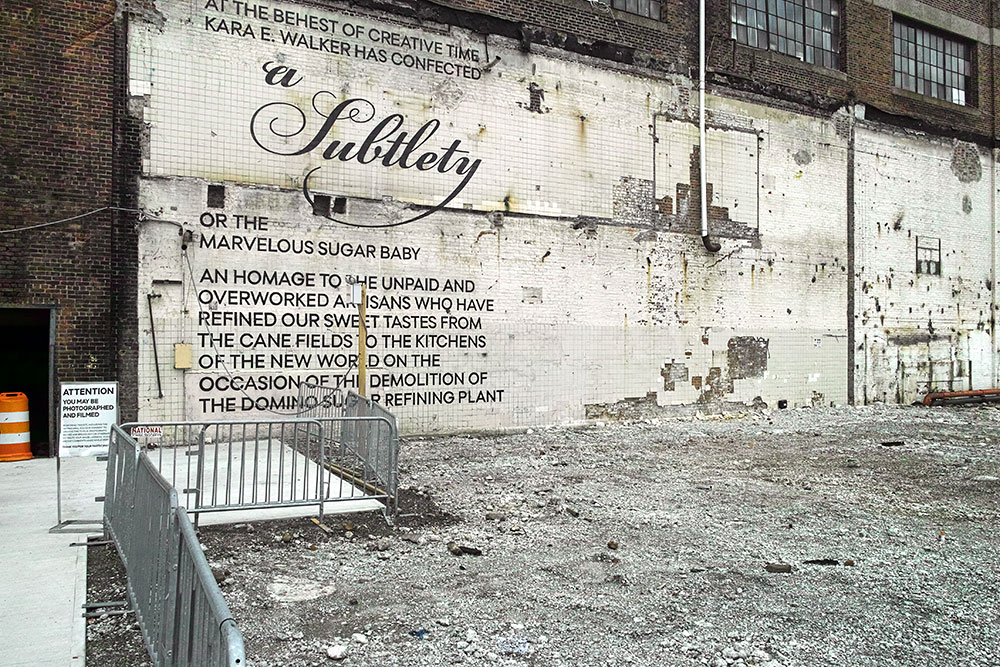 AT THE BEHEST OF CREATIVE TIME
KARA E. WALKER HAS CONFECTED
a
Subtlety
OR THE
MARVELOUS SUGAR BABY
AN HOMAGE TO THE UNPAID AND
OVERWORKED ARTISANS WHO HAVE
REFINED OUR SWEET TASTES FROM
THE CANE FIELDS TO THE KITCHENS
OF THE NEW WORLD ON THE
OCCASION OF THE DEMOLITION OF
THE DOMINO SUGAR REFINING PLANT
ATTENTION
YOU MAY BE
PHOTOGRAPHED
AND FILMED
NATIONAL